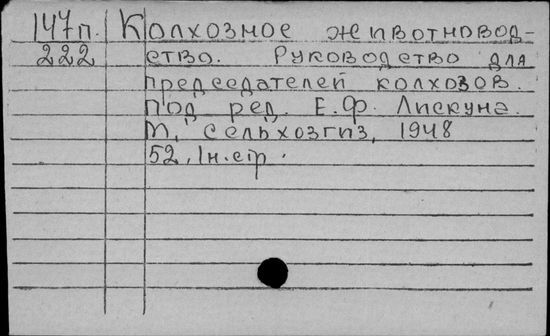 147п. Колхозное животновод-
222 ство. Руководство для
председателей колхозов.
Под ред. Е.Ф. Лискуна.
М., Сельхозгиз, 1948
52, 1н.стр.